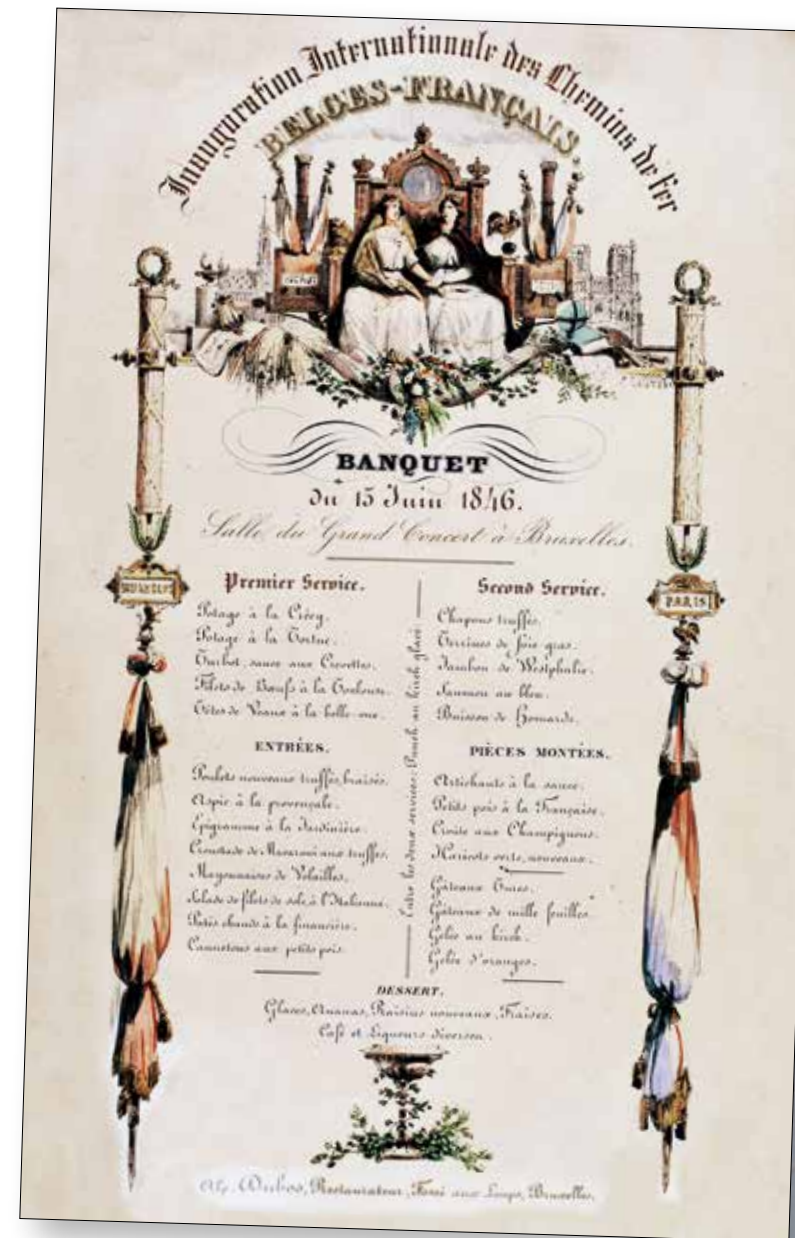 Inauguration Internationale des Chemins de fer
BELGES-FRANÇAIS.
BANQUET
du 15 Juin 1846.
Salle du Grand Concert à Bruxelles.
BRUXELLES
PARIS
Premier Service.
Potage à la Crécy.
Potage à la Tortue.
Turbot, sauce aux Crevettes.
Filets de Bœufs à la Toulouse.
Têtes de Veaux à la belle-vue.
ENTRÉES.
Poulets nouveaux truffés, braisés.
Aspic à la provençale.
Epigramme à la Jardinière.
Croustade de Macaroni aux truffes.
Mayonnaises de Volailles.
Salade de filets de sole, à l'Italienne.
Patés chauds à la financière.
Cannetons aux petits pois.
Entre les deux services: Punch au kirch glacé.
Second Service.
Chapons truffés.
Terrines de foie gras.
Jambon de Westphalie.
Saumon au bleu.
Buisson de Homards.
PIÈCES MONTÉES.
Artichauts à la sauce.
Petits pois à la Française.
Croûte aux Champignons.
Haricots verts, nouveaux.
Gâteaux Turcs.
Gâteaux de mille feuilles.
Gelée au kirch.
Gelée d'oranges.
DESSERT.
Glaces, Ananas, Raisins nouveaux, Fraises.
Café et Liqueurs diverses.
Dubos, Restaurateur, Fossé aux Loups, Bruxelles.